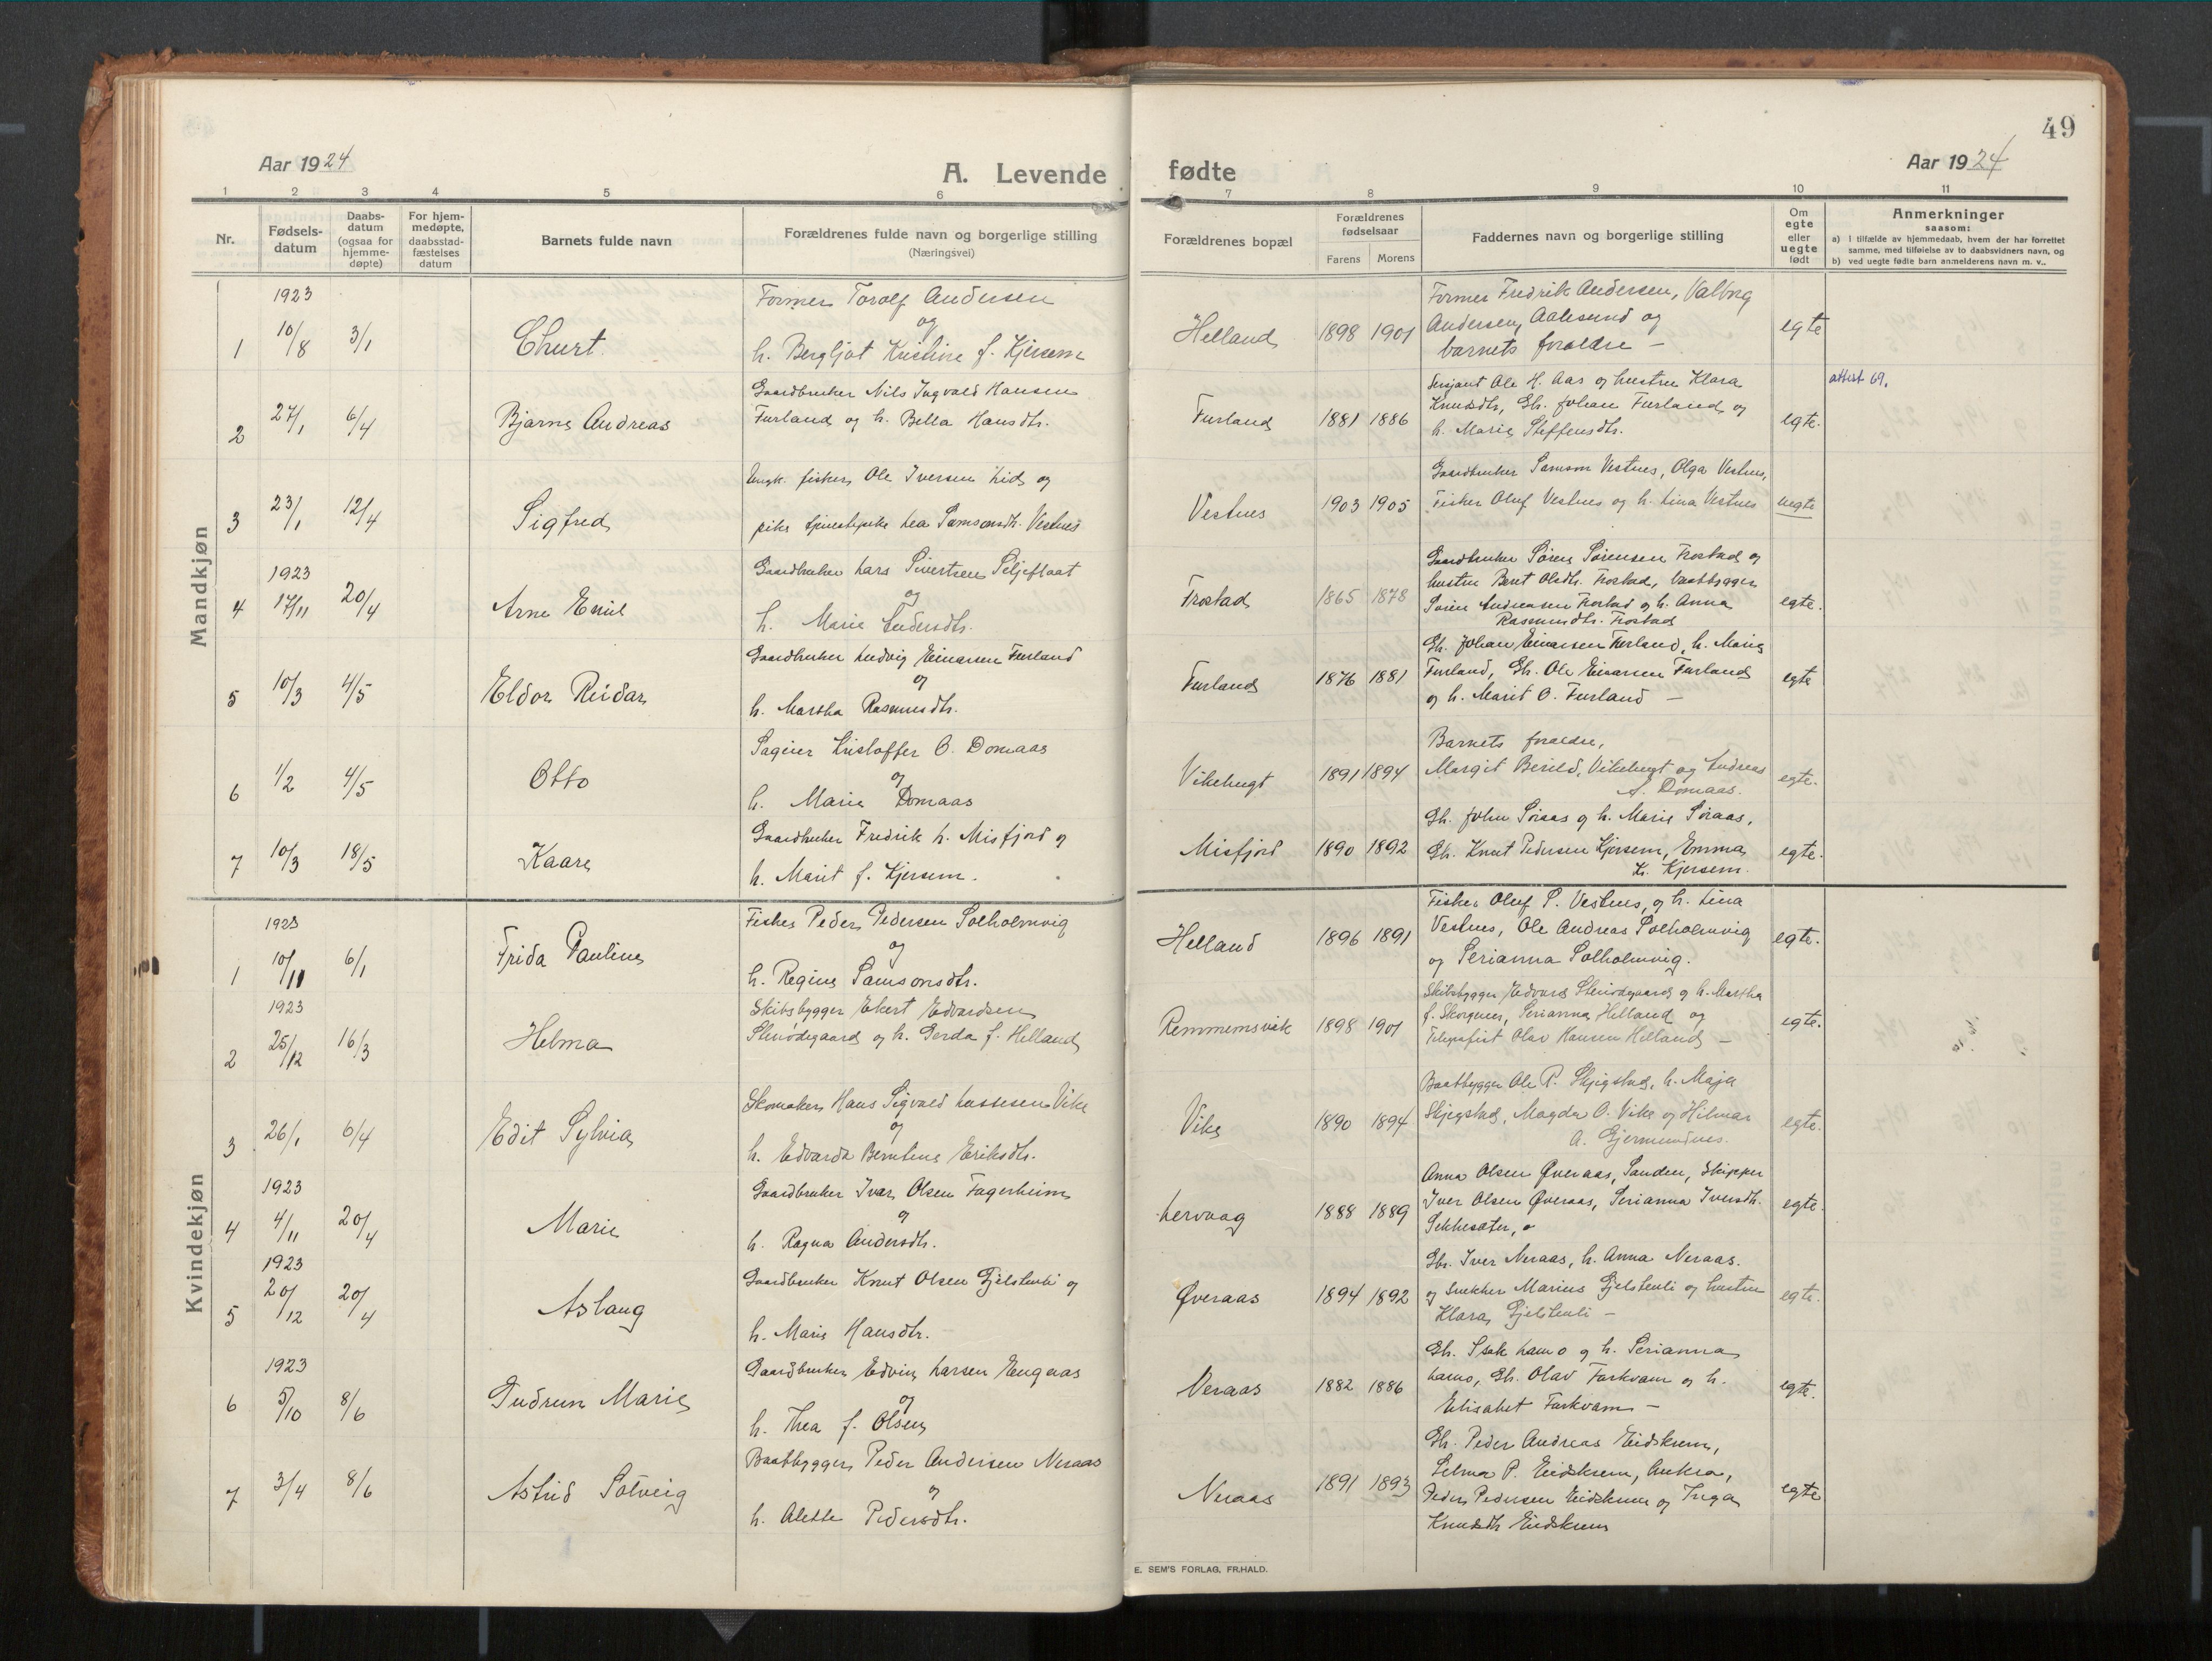 49
Aar 1924
A. Levende fødte
Aar 1924
1 2 3 4 5 6 7 8 9 10 11
Nr.
Fødsels-
datum
Daabs-
datum
(ogsaa for
hjemme-
døpte)
For hjem-
medøpte,
daabsstad-
fæstelses
datum
Barnets fulde navn
Forældrenes fulde navn og borgerlige stilling
(Næringsvei)
Forældrenes bopæl
Forældrenes
fødselsaar
Farens Morens
Faddernes navn og borgerlige stilling
Om
egte
eller
uegte
født
Anmerkninger
saasom:
a) i tilfælde av hjemmedaab, hvem der har forrettet
samme, med tilføielse av to daabsvidners navn, og
b) ved uegte fødte barn anmelderens navn m. v..
Mandkjøn
1923
1 10/8 3/1 Churt
Former Torolf Andersen
og
h. Bergljot Kristine f. Kjersem
Helland 1898 1901
Former Fredrik Andersen, Valborg
Andersen, Aalesund og
barnets foraldre –
egte
2 27/1 6/4 Bjarne Andreas
Gaardbruker Nils Ingvald Hansen
Furland og h. Bella Hansdtr.
Furland 1881 1886
Sersjant Ole H. Aas og hustru Klara
Knudsdtr, Gb. Johan Furland og
h. Marie Steffensdtr.
egte.
attest 69.
3 23/1 12/4 Sigfred
Ungk. fisker Ole Iversen Lid og
pike tjenestepike Lea Samsonsdtr. Vestnes
Vestnes 1903 1905
Gaardbruker Samson Vestnes, Olga Vestnes,
Fisker Oluf Vestnes og h. Lina Vestnes
uegte
1923
4 17/11 20/4 Arne Emil
Gaardbruker Lars Sivertsen Seljeflaat
og
h. Marie Andersdtr.
Frostad 1865 1878
Gaardbruker Søren Sørensen Frostad og
hustru Berit Olsdtr. Frostad, Baatbygger
Søren Andreasen Frostad og h. Anna
Rasmusdtr. Frostad
egte.
5 10/3 4/5 Eldor Reidar
Gaardbruker Ludvig Einarsen Furland
og
h. Martha Rasmusdtr.
Furland 1876 1881
Gb. Johan Einarsen Furland, h. Marie
Furland, Gb. Ole Einarsen Furland
og h. Marit O. Furland –
egte
6 1/2 4/5 Otto
Sageier Kristoffer O. Domaas
og
h. Marie Domaas
Vikehugt 1891 1894
Barnets foraldre,
Margit Berild, Vikehugt og Andreas
A. Domaas.
egte.
7 10/3 18/5 Kaare
Gaardbruker Fredrik L. Misfjord og
h. Marit f. Kjersem.
Misfjord 1890 1892
Gb. John Søraas og h. Marie Søraas,
Gb. Knut Pedersen Kjersem, Emma
K. Kjersem.
egte.
Kvindekjøn
1923
1 10/11 6/1 Frida Pauline
Fisker Peder Pedersen Solholmvig
og
h. Regine Samsonsdtr.
Helland 1896 1891
Fisker Oluf S. Vestnes, og h. Lina
Vestnes, Ole Andreas Solholmvig
og Serianna Solholmvig.
egte.
1923
2 25/12 16/3 Helma
Skibsbygger Ekert Edvardsen
Stenødegaard og h. Gerda f. Helland
Remmemsvik 1898 1901
Skibsbygger Edvard Stenødegaard og h. Martha
f. Skorgenes, Serianna Helland og
Telegrafist Olav Hansen Helland –
egte.
3 26/1 6/4 Edit Sylvia
Skomaker Hans Sigvald Lassesen Vike
og
h. Edvarda Berntine Eriksdtr.
Vike 1890 1894
Baatbygger Ole P. Skjegstad, h. Maja
Skjegstad, Magda O. Vike og Hilmar
A. Gjermundnes.
egte.
1923
4 4/11 20/4 Marie
Gaardbruker Ivar Olsen Fagerheim
og
h. Ragna Andersdtr.
Lervaag 1888 1889
Anna Olsen Øveraas, Sanden, Skipper
Iver Olsen Øveraas, Serianna Iversdtr.
Sekkesæter,
egte.
1923
5 20/12 20/4 Aslaug
Gaardbruker Knut Olsen Gjelstenli og
h. Marie Hansdtr.
Øveraas 1894 1892
Gbr. Iver Neraas, h. Anna Neraas.
og Snekker Marius Gjelstenli og hustru
Klara Gjelstenli –
egte.
1923
6 5/10 8/6 Gudrun Marie
Gaardbruker Edvin Larsen Engeaas
og
h. Thea f. Olsen
Neraas 1882 1886
Gb. Isak Lamo og h. Serianna
Lamo, Gb. Olav Farkvam og h.
Elisabet Farkvam –
egte.
7 3/4 8/6 Astrid Solveig
Baatbygger Peder Andersen Neraas
og
h. Alette Pedersdtr.
Neraas 1891 1893
Gb. Peder Andreas Eidskrem,
Selma P. Eidskrem, Aukra,
Peder Pedersen Eidskrem og Inga
Knudsdtr Eidskrem
egte
E. SEM'S FORLAG, FR.HALD.